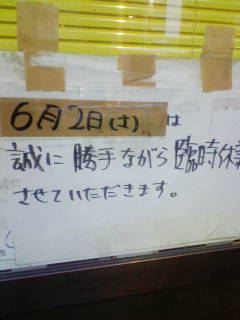 6月2日(土) は
誠に 勝手ながら 臨時休業
させていただきます。